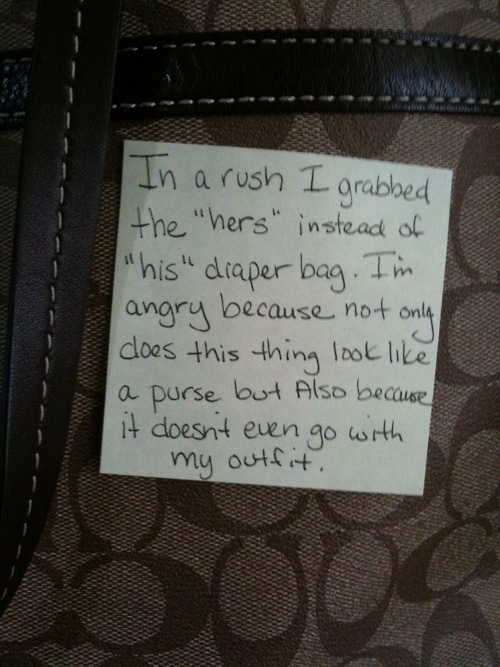 In a rush I grabbed
the "hers" instead of
"his" diaper bag. I'm
angry because not only
does this thing look like
a purse but Also because
it doesn't even go with
my outfit.